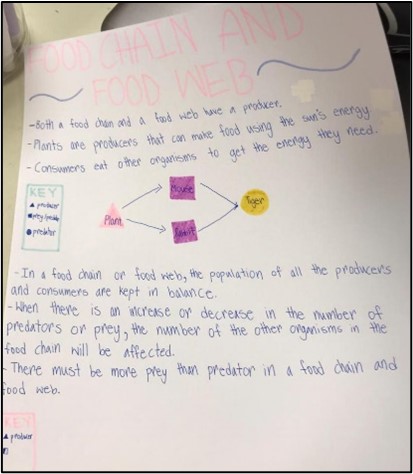 FOOD CHAIN AND
FOOD WEB
-Both a food chain and a food web have a producer.
-Plants are producers that can make food using the sun's energy.
-Consumers eat other organisms to get the energy they need.
KEY
▲ producer
■ prey/predator
● predator
Plant
Mouse
Rabbit
Tiger
-In a food chain or food web, the population of all the producers
and consumers are kept in balance.
-When there is an increase or decrease in the number of
predators or prey, the number of the other organisms in the
food chain will be affected.
-There must be more prey than predator in a food chain and
food web.
KEY
▲ producer